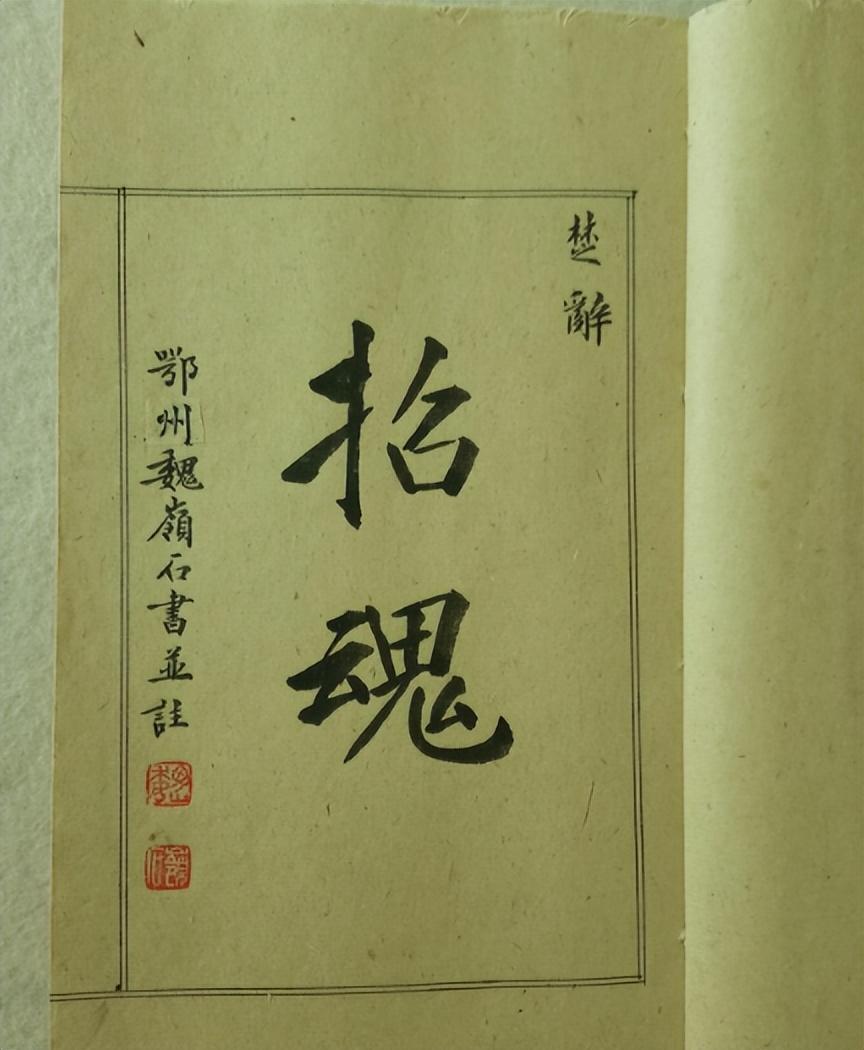 楚辭
招魂
鄂州魏嶺石書並註
魏
嶺石